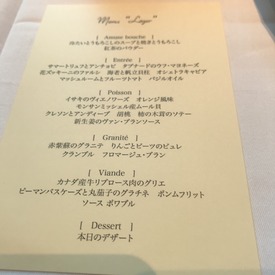 Menu "Lago"
[ Amuse bouche ]
冷たいとうもろこしのスープと焼きとうもろこし
紅茶のパウダー
[ Entrée ]
サマートリュフとアンチョビ タプナードのウフ・マヨネーズ
花ズッキーニのファルシ 海老と帆立貝柱 オシェトラキャビア
マッシュルームとフルーツトマト バジルオイル
[ Poisson ]
イサキのヴィエノワーズ オレンジ風味
モンサンミッシェル産ムール貝
クレソンとアンディーブ 胡桃 柿の木茸のソテー
新生姜のヴァン・ブランソース
[ Granité ]
赤紫蘇のグラニテ りんごとビーツのピュレ
クランブル フロマージュ・ブラン
[ Viande ]
カナダ産牛リブロース肉のグリエ
ピーマンバスケーズと丸茄子のグラチネ ポンムフリット
ソース ポワブル
[ Dessert ]
本日のデザート